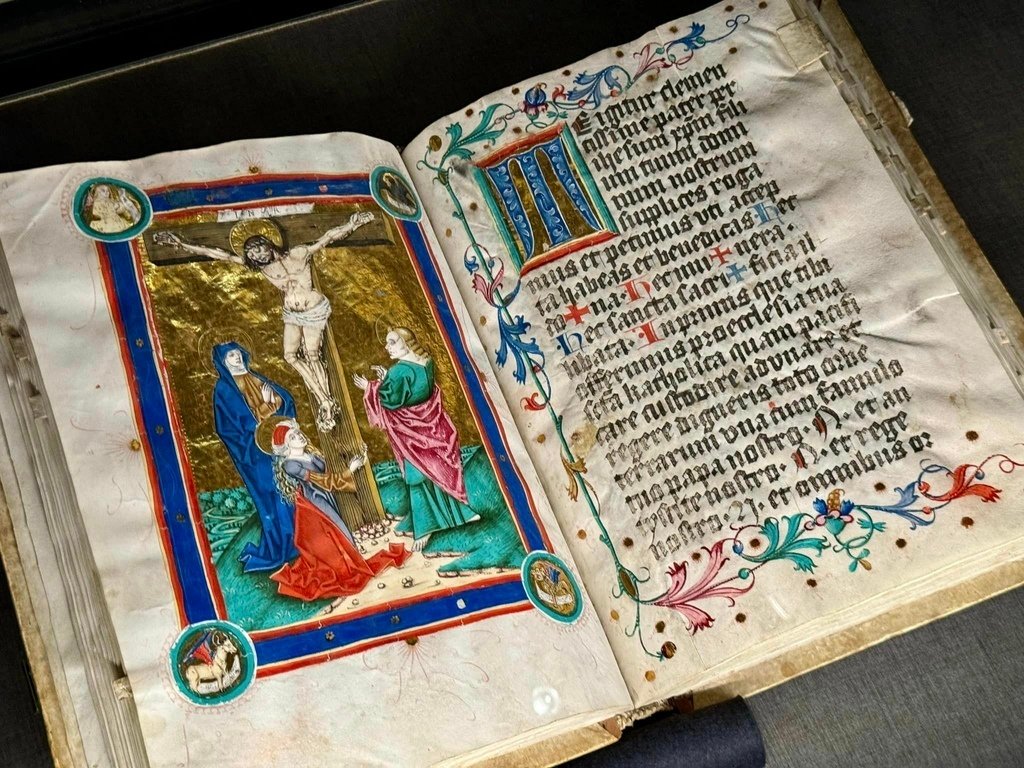 TE igitur clemen
tissime pater per
ihesum xpm̄ fili
um tuum domi
num nostrum
supplices roga
mus et petimus uti accep
ta habeas et benedicas Hec
do + na. Hec mu + nera.
Hec sancta sacri + ficia il
libata. Inprimis que tibi
offerimus pro ecclesia tua
sctā katholica quam pacifi
care custodire adunare et
regere digneris toto orbe
terrarum una cum famulo
tuo papa nostro. N. et an
tistite nostro. N. et rege
nostro. N. et omnibus or